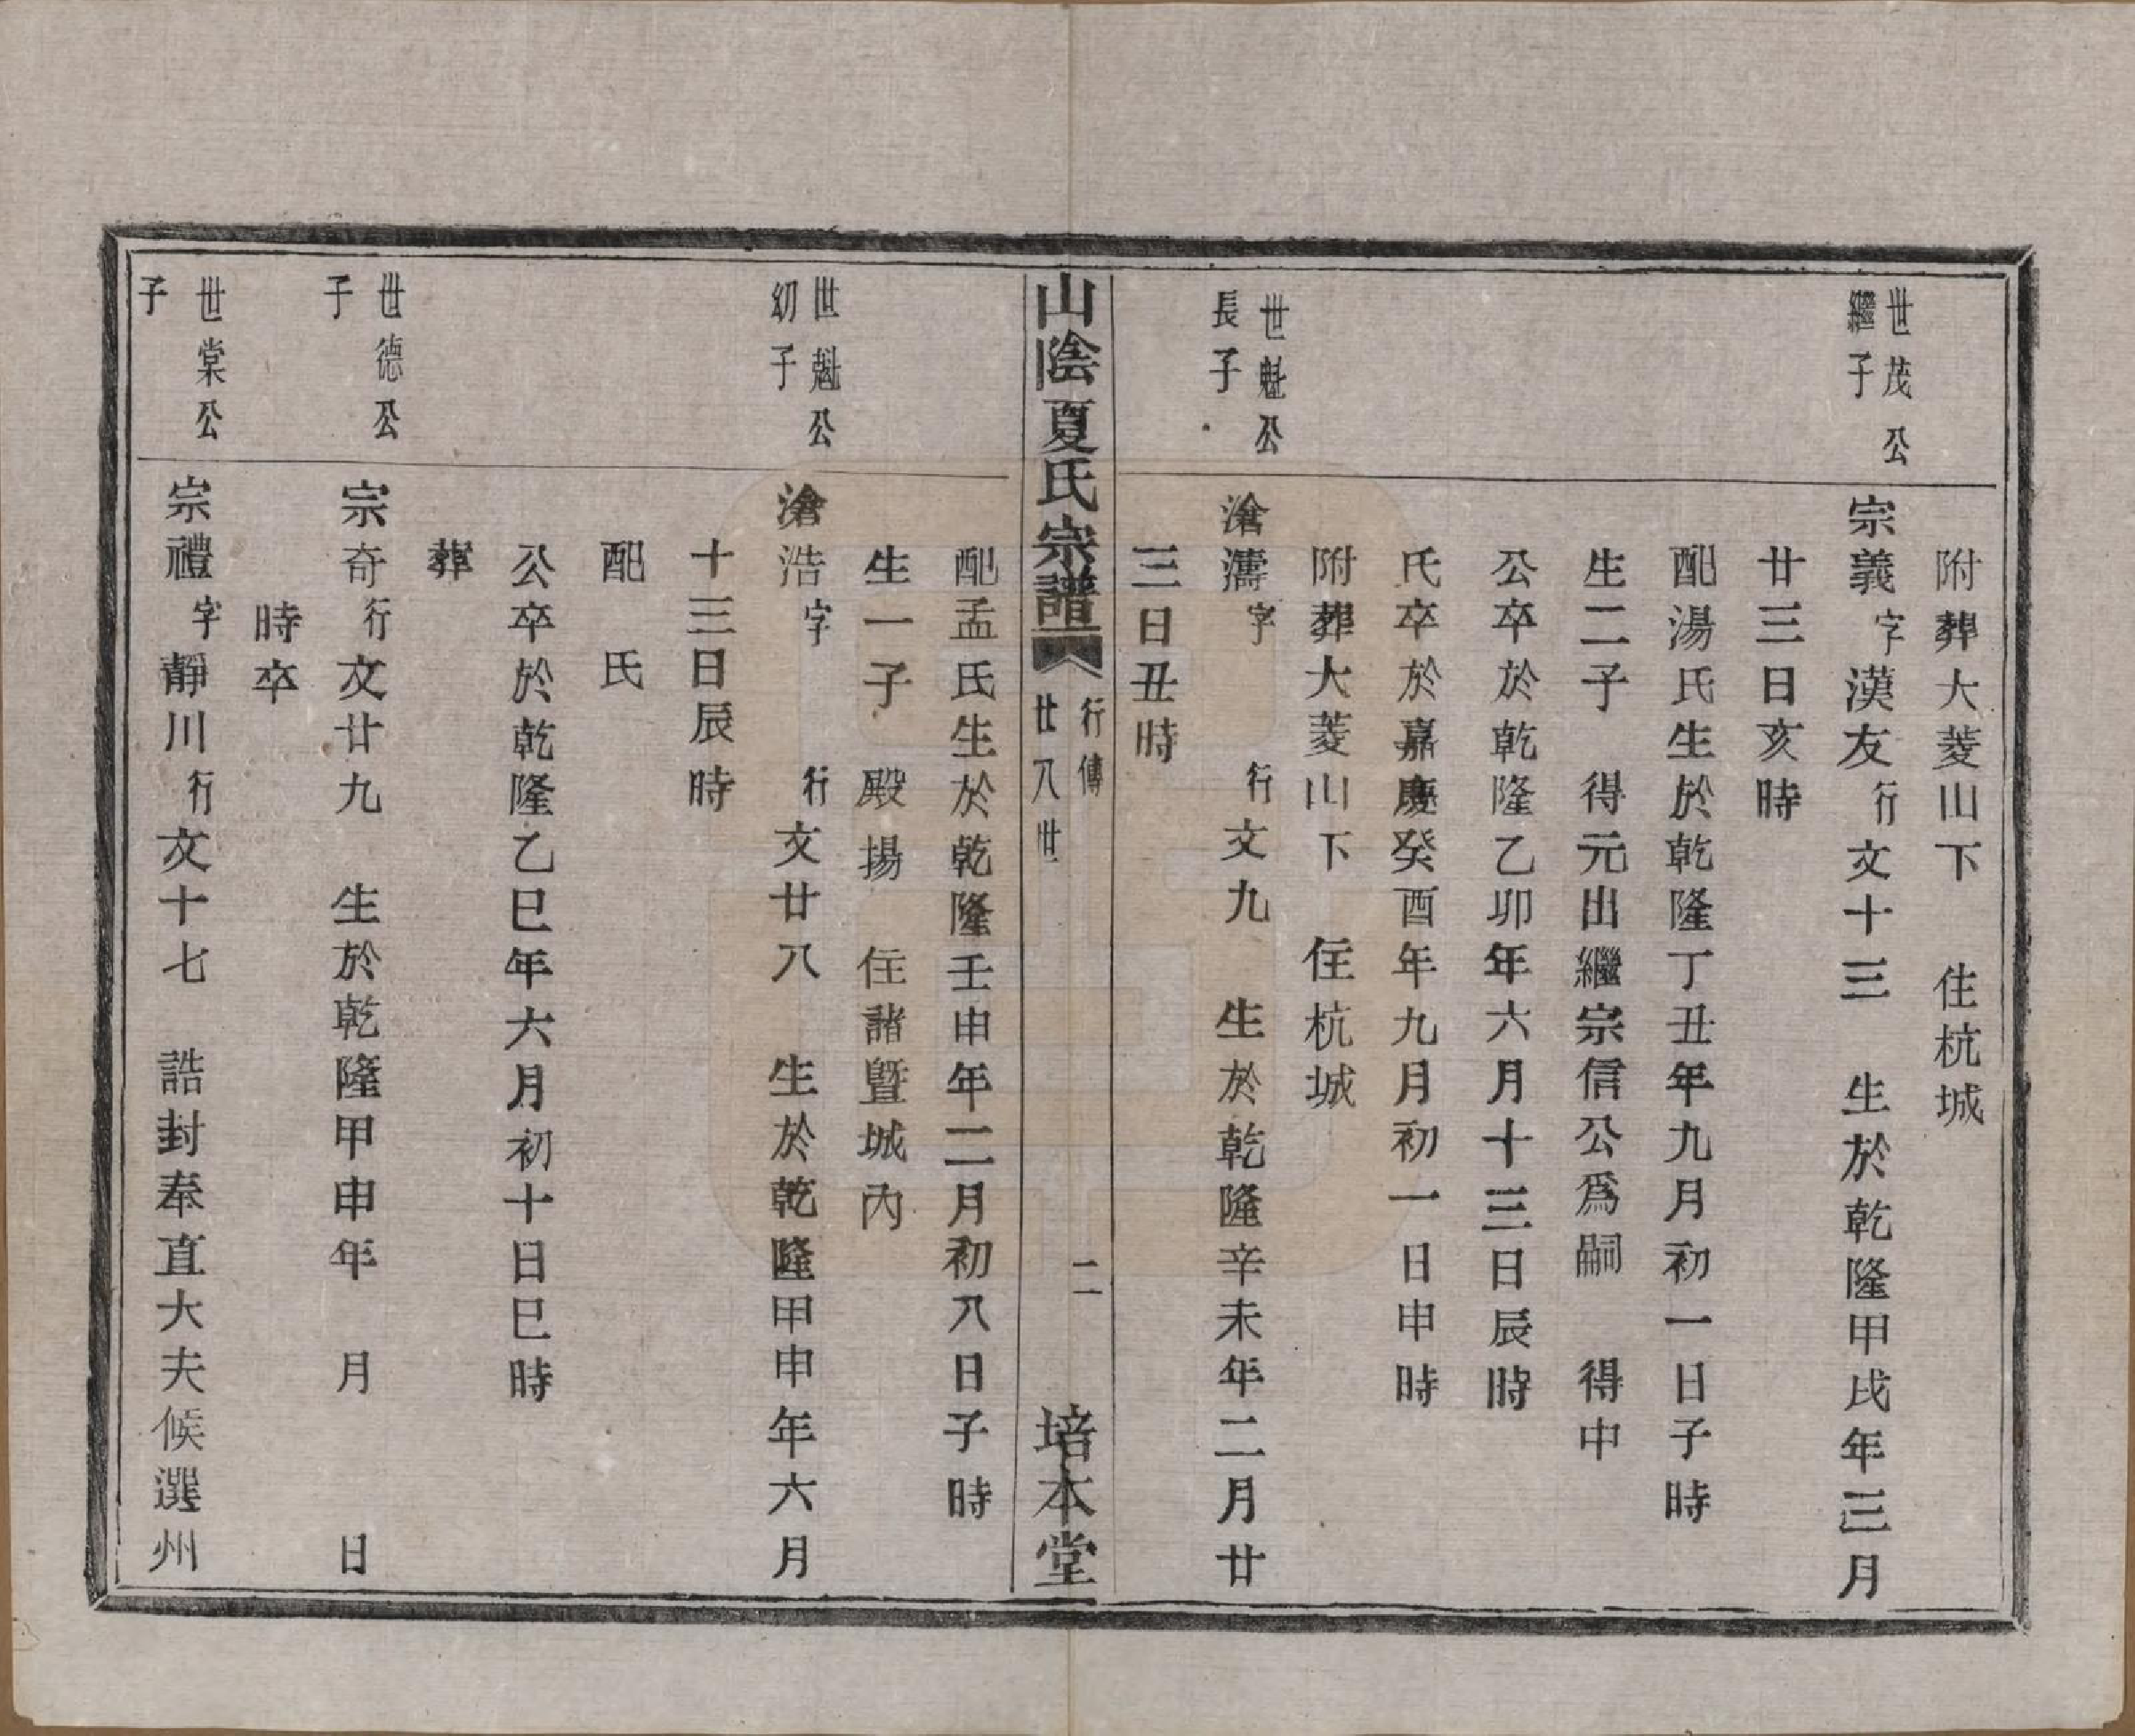 附葬大菱山下　住杭城
世茂公
繼子
宗義字漢友行文十三　生於乾隆甲戌年三月
廿三日亥時
配湯氏生於乾隆丁丑年九月初一日子時
生二子　得元出繼宗信公爲嗣　得中
公卒於乾隆乙卯年六月十三日辰時
氏卒於嘉慶癸酉年九月初一日申時
附葬大菱山下　住杭城
世魁公
長子
滄濤字　行文九　生於乾隆辛未年二月廿
三日丑時
山陰夏氏宗譜
行傳
廿八世
二
培本堂
配孟氏生於乾隆壬申年二月初八日子時
生一子　殿揚　住諸暨城內
世魁公
幼子
滄浩字　行文廿八　生於乾隆甲申年六月
十三日辰時
配　氏
公卒於乾隆乙巳年六月初十日巳時
葬
世德公
子
宗奇行文廿九　生於乾隆甲申年　月　日
時卒
世棠公
子
宗禮字靜川行文十七　誥封奉直大夫候選州